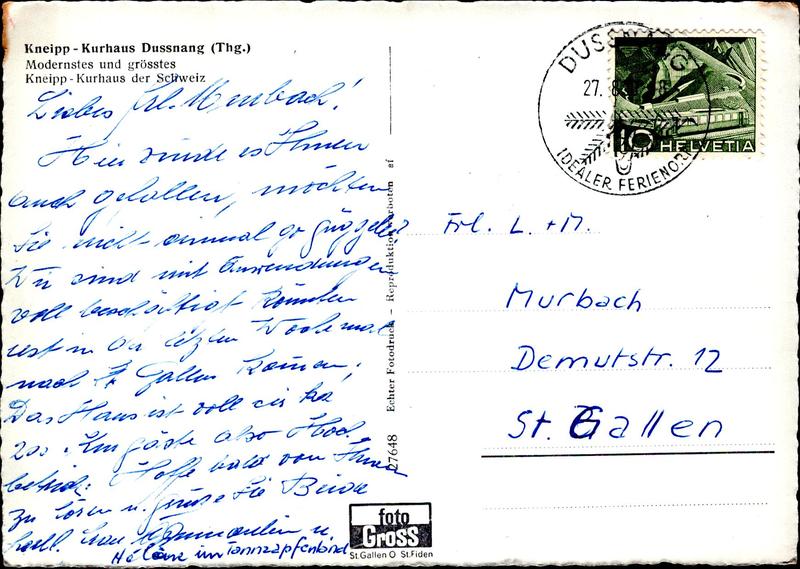 Kneipp - Kurhaus Dussnang (Thg.)
Modernstes und grösstes
Kneipp - Kurhaus der Schweiz
Liebes Frl. Murbach!
Hier würde es Ihnen
auch gefallen, möchten
Sie nicht einmal go güggele?
Wir sind mit Anwendungen
voll beschäftigt könnten
erst in der letzten Woche mal
nach St Gallen kommen.
Das Haus ist voll
200 Kurgäste also Hoch
betrieb. Hoffe bald von Ihnen
zu hören u. grüsse Sie Beide
herzl. u.
Hélène im Tannzapfenland
Echter Fotodruck - Reproduktion verboten af
27648
foto
Gross
St.Gallen O St.Fiden
DUSSNANG
27. 8.
IDEALER FERIENORT
10 HELVETIA
Frl. L. + M.
Murbach
Demutstr. 12
St. Gallen